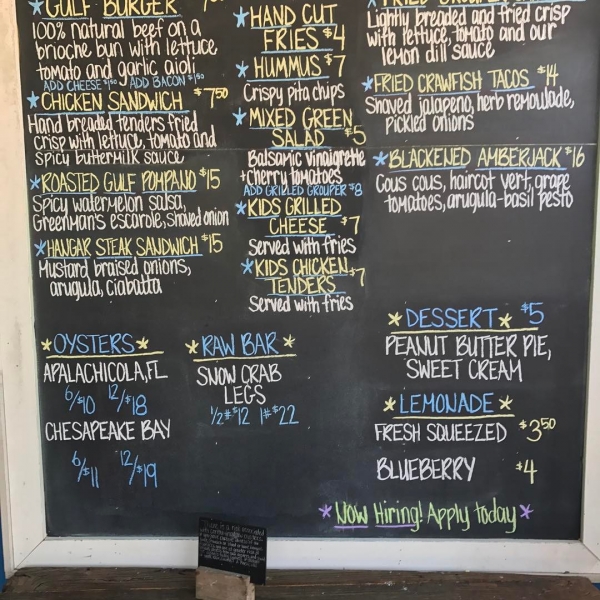 *GULF BURGER
100% natural beef on a
brioche bun with lettuce
tomato and garlic aioli
ADD CHEESE $1.50 ADD BACON $1.50
*CHICKEN SANDWICH $7.50
Hand breaded tenders fried
crisp with lettuce, tomato and
spicy buttermilk sauce
*ROASTED GULF POMPANO $15
Spicy watermelon salsa,
Greenman's escarole, shaved onion
*HANGAR STEAK SANDWICH $15
Mustard braised onions,
arugula, ciabatta
*HAND CUT
FRIES $4
*HUMMUS $7
Crispy pita chips
*MIXED GREEN
SALAD $5
Balsamic vinaigrette
+cherry tomatoes
ADD GRILLED GROUPER $8
*KIDS GRILLED
CHEESE $7
Served with fries
*KIDS CHICKEN
TENDERS $7
Served with fries
*FRIED GROUPER
Lightly breaded and fried crisp
with lettuce, tomato and our
lemon dill sauce
*FRIED CRAWFISH TACOS $14
Shaved jalapeno, herb remoulade,
pickled onions
*BLACKENED AMBERJACK $16
Cous cous, haricot vert, grape
tomatoes, arugula-basil pesto
*OYSTERS*
APALACHICOLA, FL
6/$10 12/$18
CHESAPEAKE BAY
6/$11 12/$19
*RAW BAR*
SNOW CRAB
LEGS
1/2# $12 1# $22
*DESSERT* $5
PEANUT BUTTER PIE,
SWEET CREAM
*LEMONADE*
FRESH SQUEEZED $3.50
BLUEBERRY $4
*Now Hiring! Apply today*